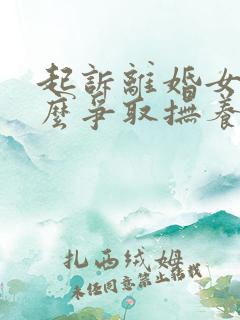 起訴離婚女
麼爭取撫養
扎西绒姆
未经同意禁止转载